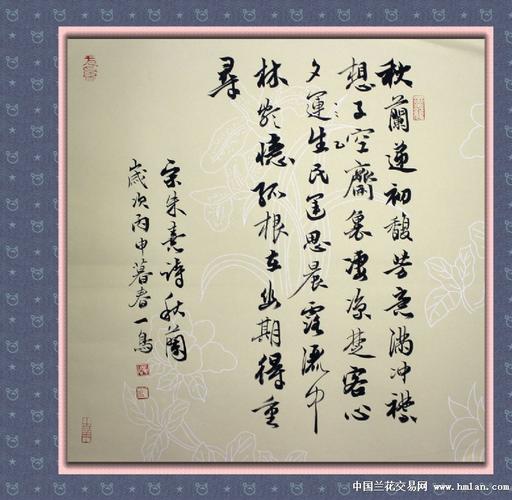 秋蘭遞初馥芳意滿沖襟
想子空齋裏凄涼楚客心
夕運生民思晨露流中
林憶孤根在幽期得重
尋
宋朱熹詩秋蘭
歲次丙申暮春一鳥
中国兰花交易网 www.hmlan.com